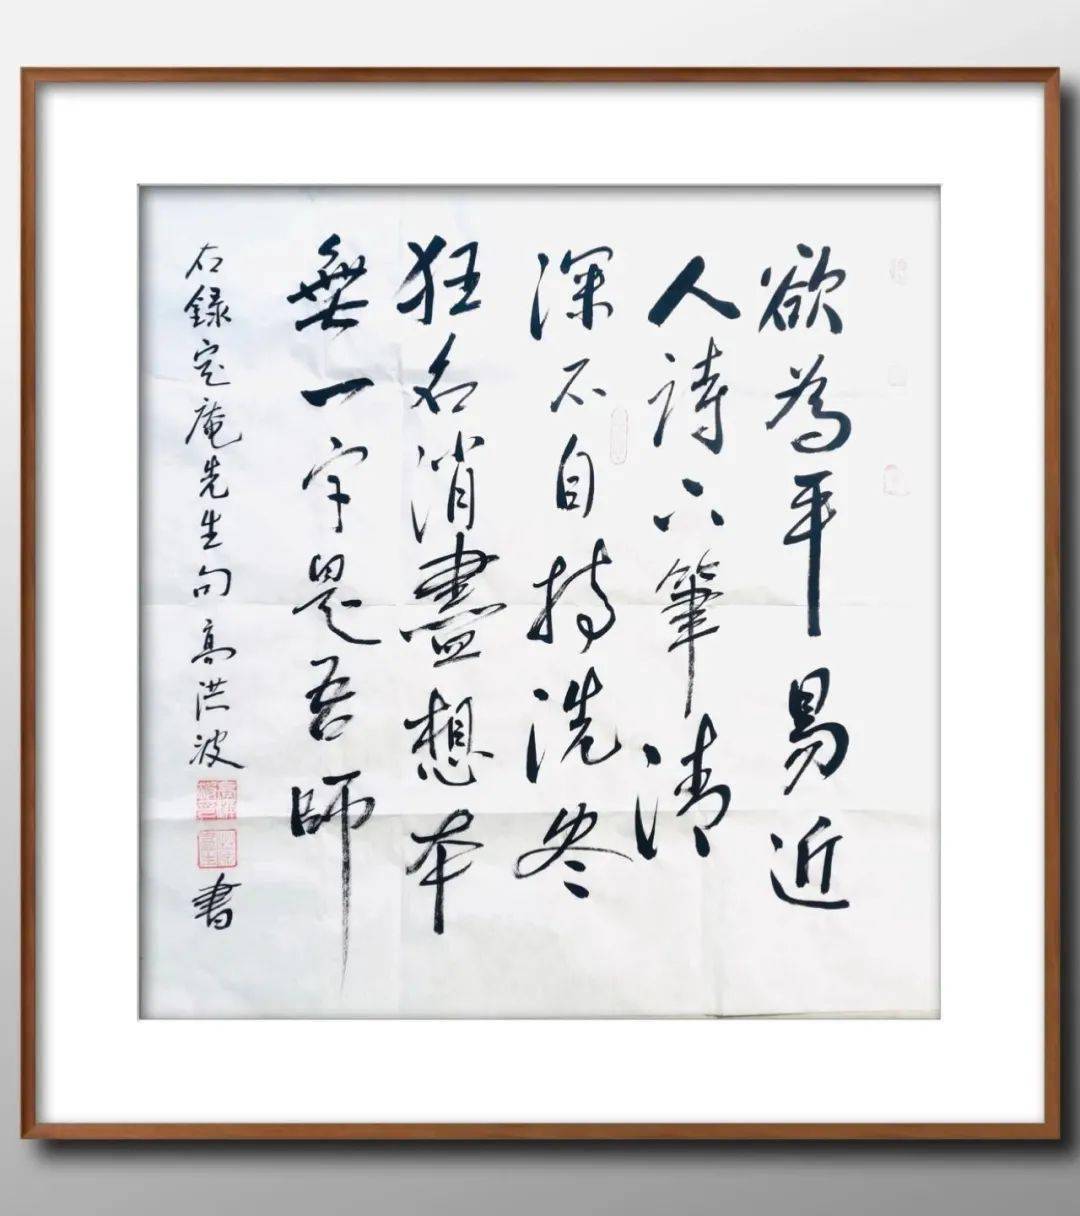 欲為平易近
人詩下筆清
深不自持洗尽
狂名消盡想本
無一字是吾師
右録定庵先生句高洪波
書